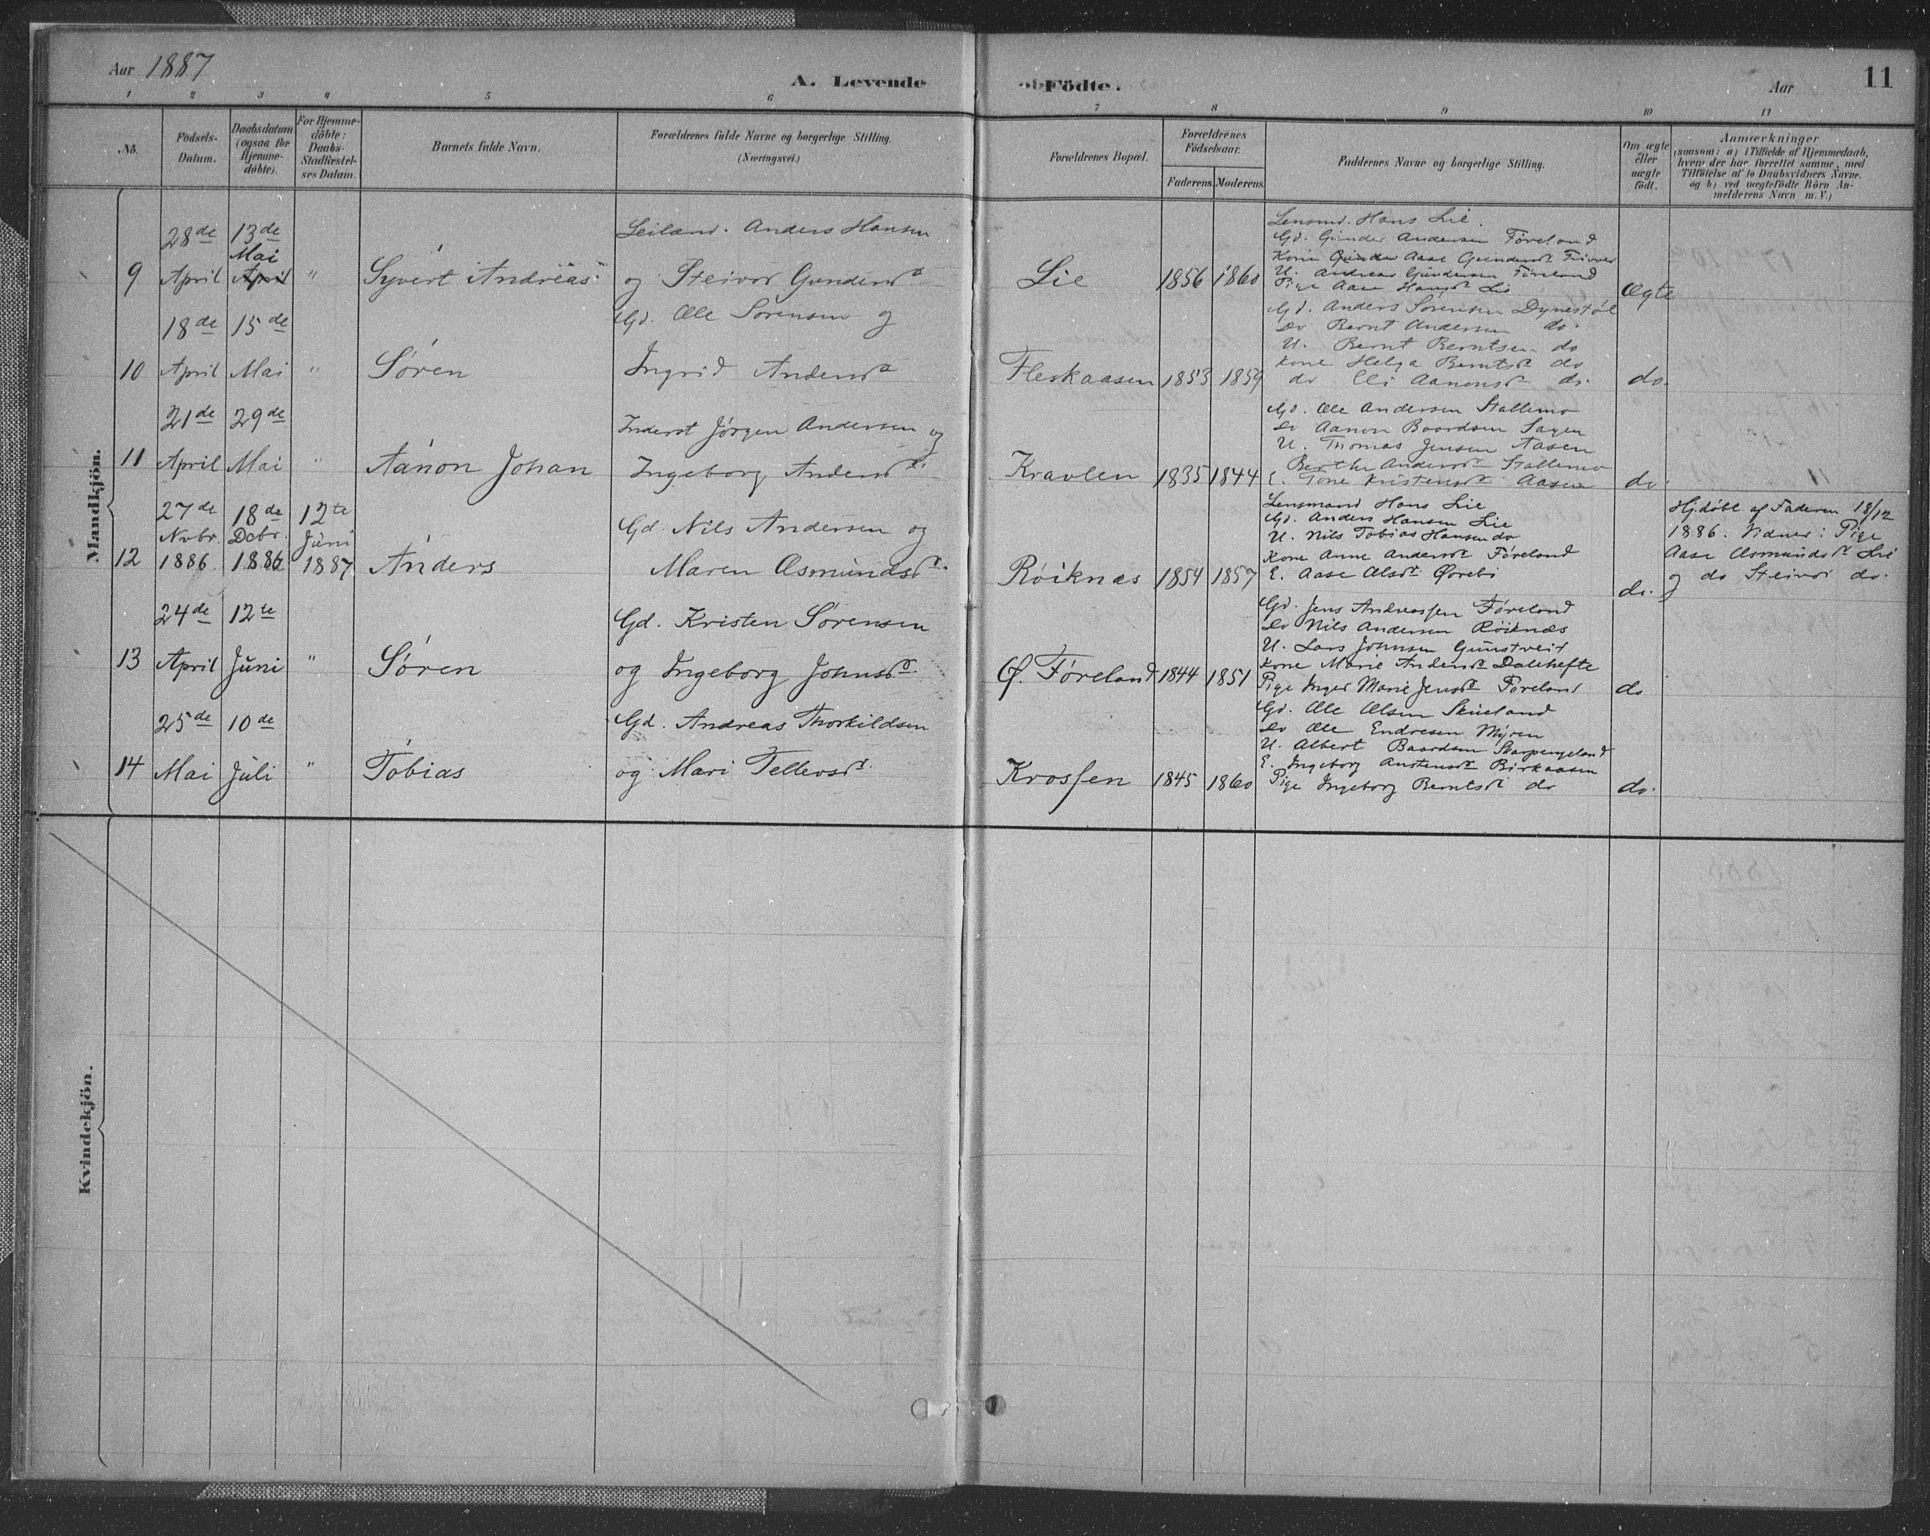 Aar 1887
A. Levende Födte.
Aar
11
1 2 3 4 5 6 7 8 9 10 11
No.
Födsels-Datum.
Daabsdatum (ogsaa for Hjemme-döbte).
For Hjemme-döbte: Daabs-Stadfæstel-ses Datum.
Barnets fulde Navn.
Forældrenes fulde Navne og borgerlige Stilling. (Næringsvei.)
Forældrenes Bopæl.
Forældrenes Födselsaar.
Faderens. Moderens.
Faddernes Navne og borgerlige Stilling.
Om ægte eller uægte födt.
Anmærkninger
(saasom: a) i Tilfælde af Hjemmedaab,
hvem der har forrettet samme, med
Tilföielse af to Daabsvidners Navne.
og b) ved uægtefödte Börn An-
melderens Navn m. V.)
Mandkjön.
9
28de April
13de Mai April
"
Syvert Andreas
Leilænd. Anders Hansen
og Steivor Gundersdt
Lie
1856 1860
Lensmd. Hans Lie.
Gd. Gunder Andersen Føreland
Kone Gunder Aase Gundersdt
U. Andreas Gundersen Føreland
Pige Aase Hansdt Lie
Ægte
10
18de April
15de Mai
"
Søren
Gd. Ole Sørensen og
Ingrid Andersdt
Fleskaasen
1853 1859
Gd. Anders Sørensen Dynestøl
Do Bernt Andersen do.
U. Bernt Berntsen do
Kone Helga Berntsdt do
do Eli Aanonsdt do
do.
11
21de April
29de Mai
"
Aanon Johan
Inderst Jørgen Andersen og
Ingeborg Andersdt
Kravlen
1835 1844
Gd. Ole Andersen Stallemo
Do Aanon Baardsen Sagen
U. Thomas Jensen Aasen
Berthe Andersdt Stallemo
E. Tone Kristensdt Aasen
do.
12
27de Novbr. 1886
18de Decbr. 1886
12te Juni 1887
Anders
Gd. Nils Andersen og
Maren Osmundsdt.
Røiknæs
1854 1857
Lensmand Hans Lie
Gd. Anders Hansen Lie
U. Nils Tobias Hansen do
Kone Anne Andersdt Føreland
E. Aase Olsdt Øvrebø
do.
Hjdøbt af Faderen 18/12
1886. Vidner: Pige
Aase Osmundsdt Lie
og do Steivor do.
13
24de April
12te Juni
"
Søren
Gd. Kristen Sørensen
og Ingeborg Johnsdt
Ø. Føreland
1844 1851
Gd. Jens Andreassen Føreland
Do Nils Andersen Røiknæs
U. Lars Johnsen Gunstveit
Kone Marie Andersdt Dalehefte
Pige Inger Marie Jensdt Føreland
do
14
25de Mai
10de Juli
"
Tobias
Gd. Andreas Thorkildsen
og Mari Tellevsdt
Krossen
1845 1860
Gd. Ole Olsen Skueland
Do Ole Endresen Myren
U. Albert Baardsen Skarpengeland
E. Ingeborg Austensdt Birkaasen
Pige Ingeborg Berntsdt do
do.
Kvindekjön.